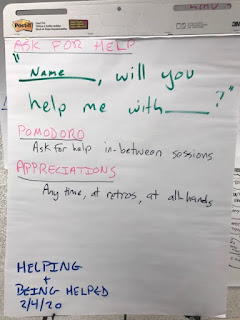 Post-it
ASK FOR HELP
"Name, will you
help me with______?"
POMODORO
Ask for help in-between sessions
APPRECIATIONS
Any time, at retros, at all-hands
HELPING
+
BEING HELPED
2/4/20